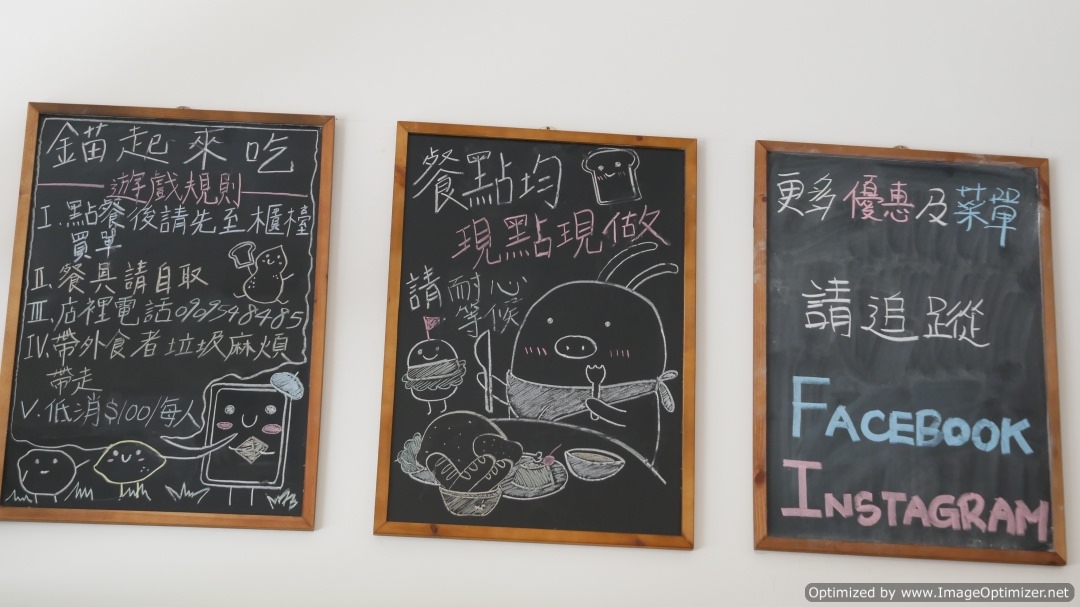 錨起來吃
遊戲規則
I. 點餐後請先至櫃檯
買單
II. 餐具請自取
III. 店裡電話0905948485
IV. 帶外食者垃圾麻煩
帶走
V. 低消$100/每人
餐點均
現點現做
請耐心
等候
更多優惠及菜單
請追蹤
FACEBOOK
INSTAGRAM
Optimized by www.ImageOptimizer.net